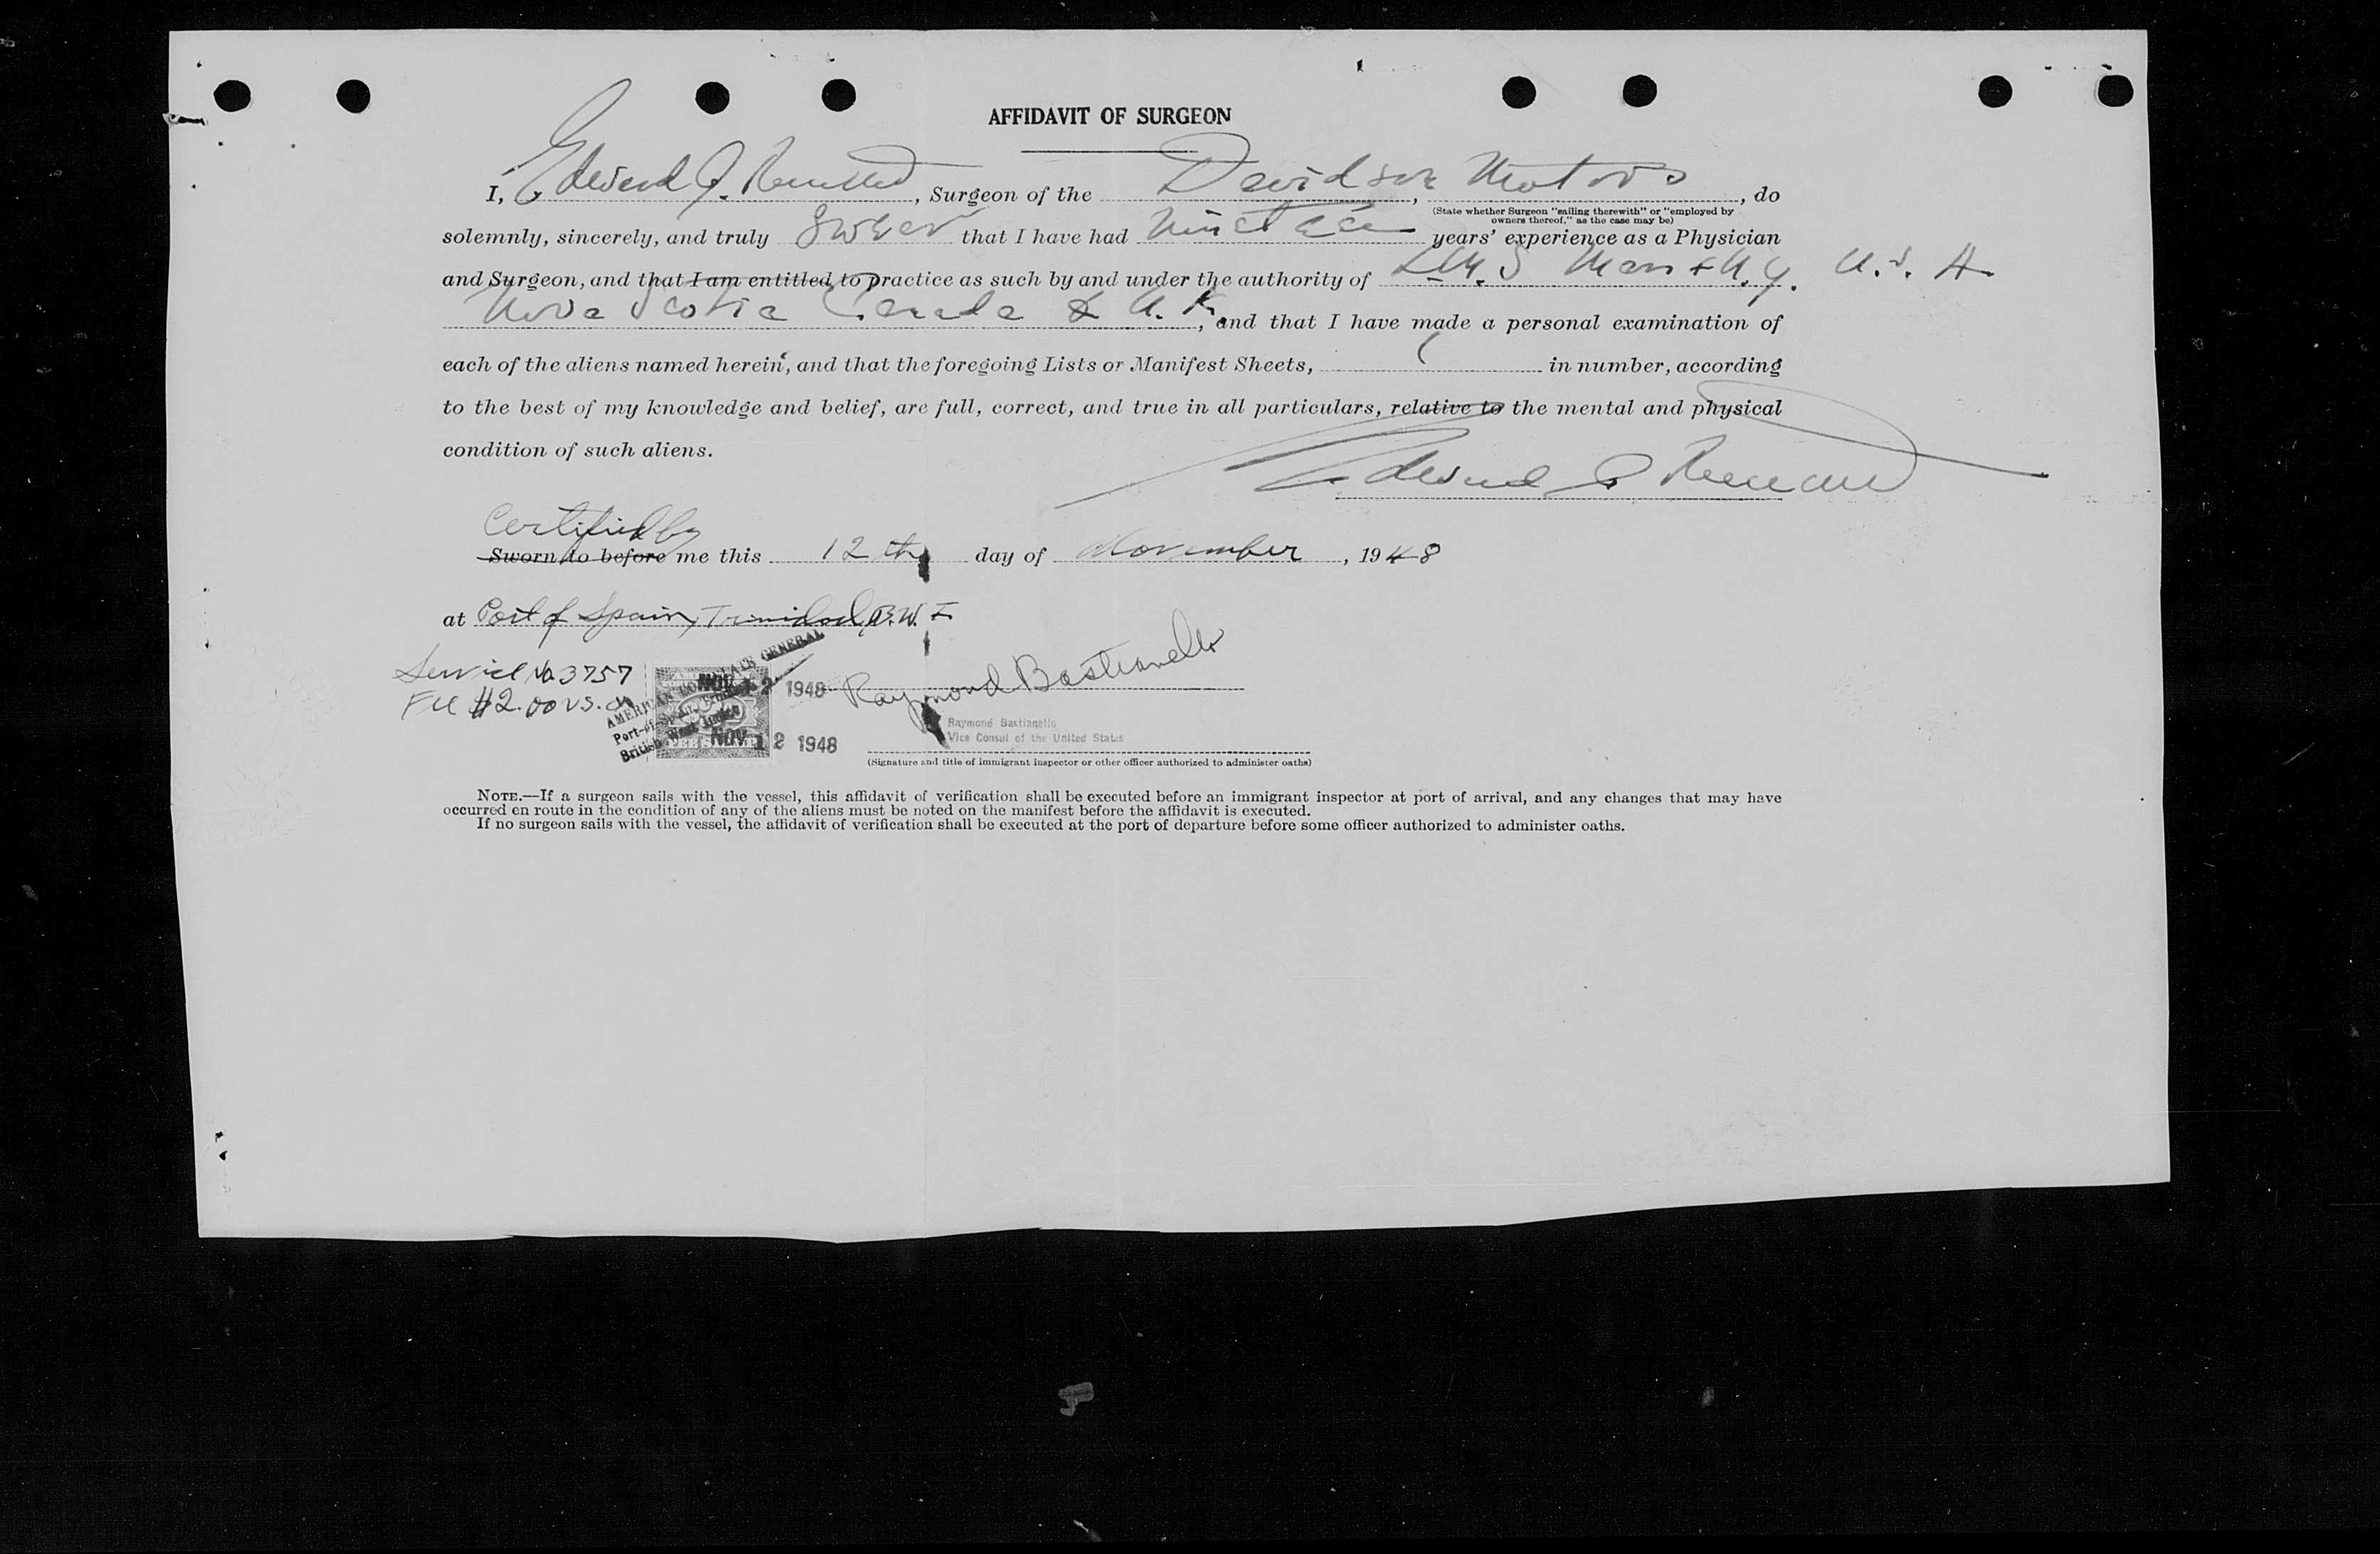 AFFIDAVIT OF SURGEON
I, Edward J., Surgeon of the Davidson Motors, do
(State whether Surgeon "sailing therewith" or "employed by
owners thereof," as the case may be)
solemnly, sincerely, and truly swear that I have had nineteen years' experience as a Physician
and Surgeon, and that I am entitled to practice as such by and under the authority of & N.Y. U.S.A.
Nova Scotia Canada & U.K., and that I have made a personal examination of
each of the aliens named herein, and that the foregoing Lists or Manifest Sheets, in number, according
to the best of my knowledge and belief, are full, correct, and true in all particulars, relative to the mental and physical
condition of such aliens.
Edward J.
Certified by
Sworn to before me this 12th day of November, 1948
at Port of Spain, Trinidad, B.W.I.
Service No 3757
Fee $2.00 U.S. cy
AMERICAN CONSULATE GENERAL
Port-of-Spain, Trinidad
British West Indies
NOV 12 1948
NOV 12 1948
Raymond Bastianello
Raymond Bastianello
Vice Consul of the United States
(Signature and title of immigrant inspector or other officer authorized to administer oaths)
NOTE.—If a surgeon sails with the vessel, this affidavit of verification shall be executed before an immigrant inspector at port of arrival, and any changes that may have
occurred en route in the condition of any of the aliens must be noted on the manifest before the affidavit is executed.
If no surgeon sails with the vessel, the affidavit of verification shall be executed at the port of departure before some officer authorized to administer oaths.